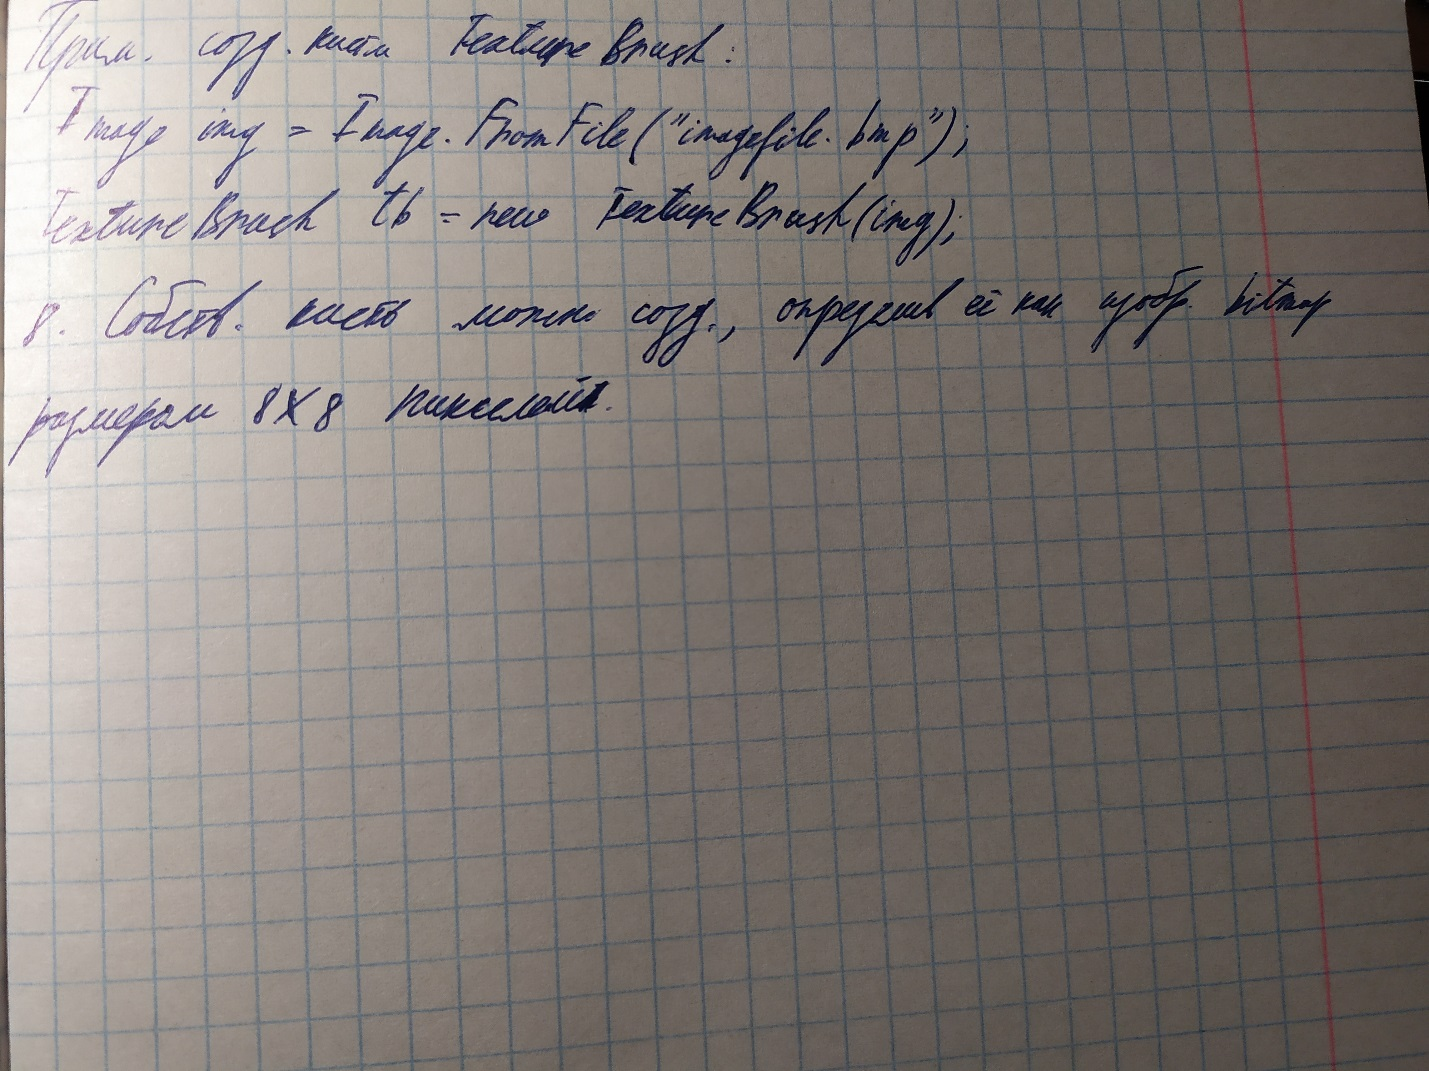 Прим. созд. кисти TextureBrush:
Image img = Image.FromFile("imagefile.bmp");
TextureBrush tb = new TextureBrush(img);
8. Собств. кисть можно созд., определив её как изобр. bitmap
размером 8X8 пикселей.